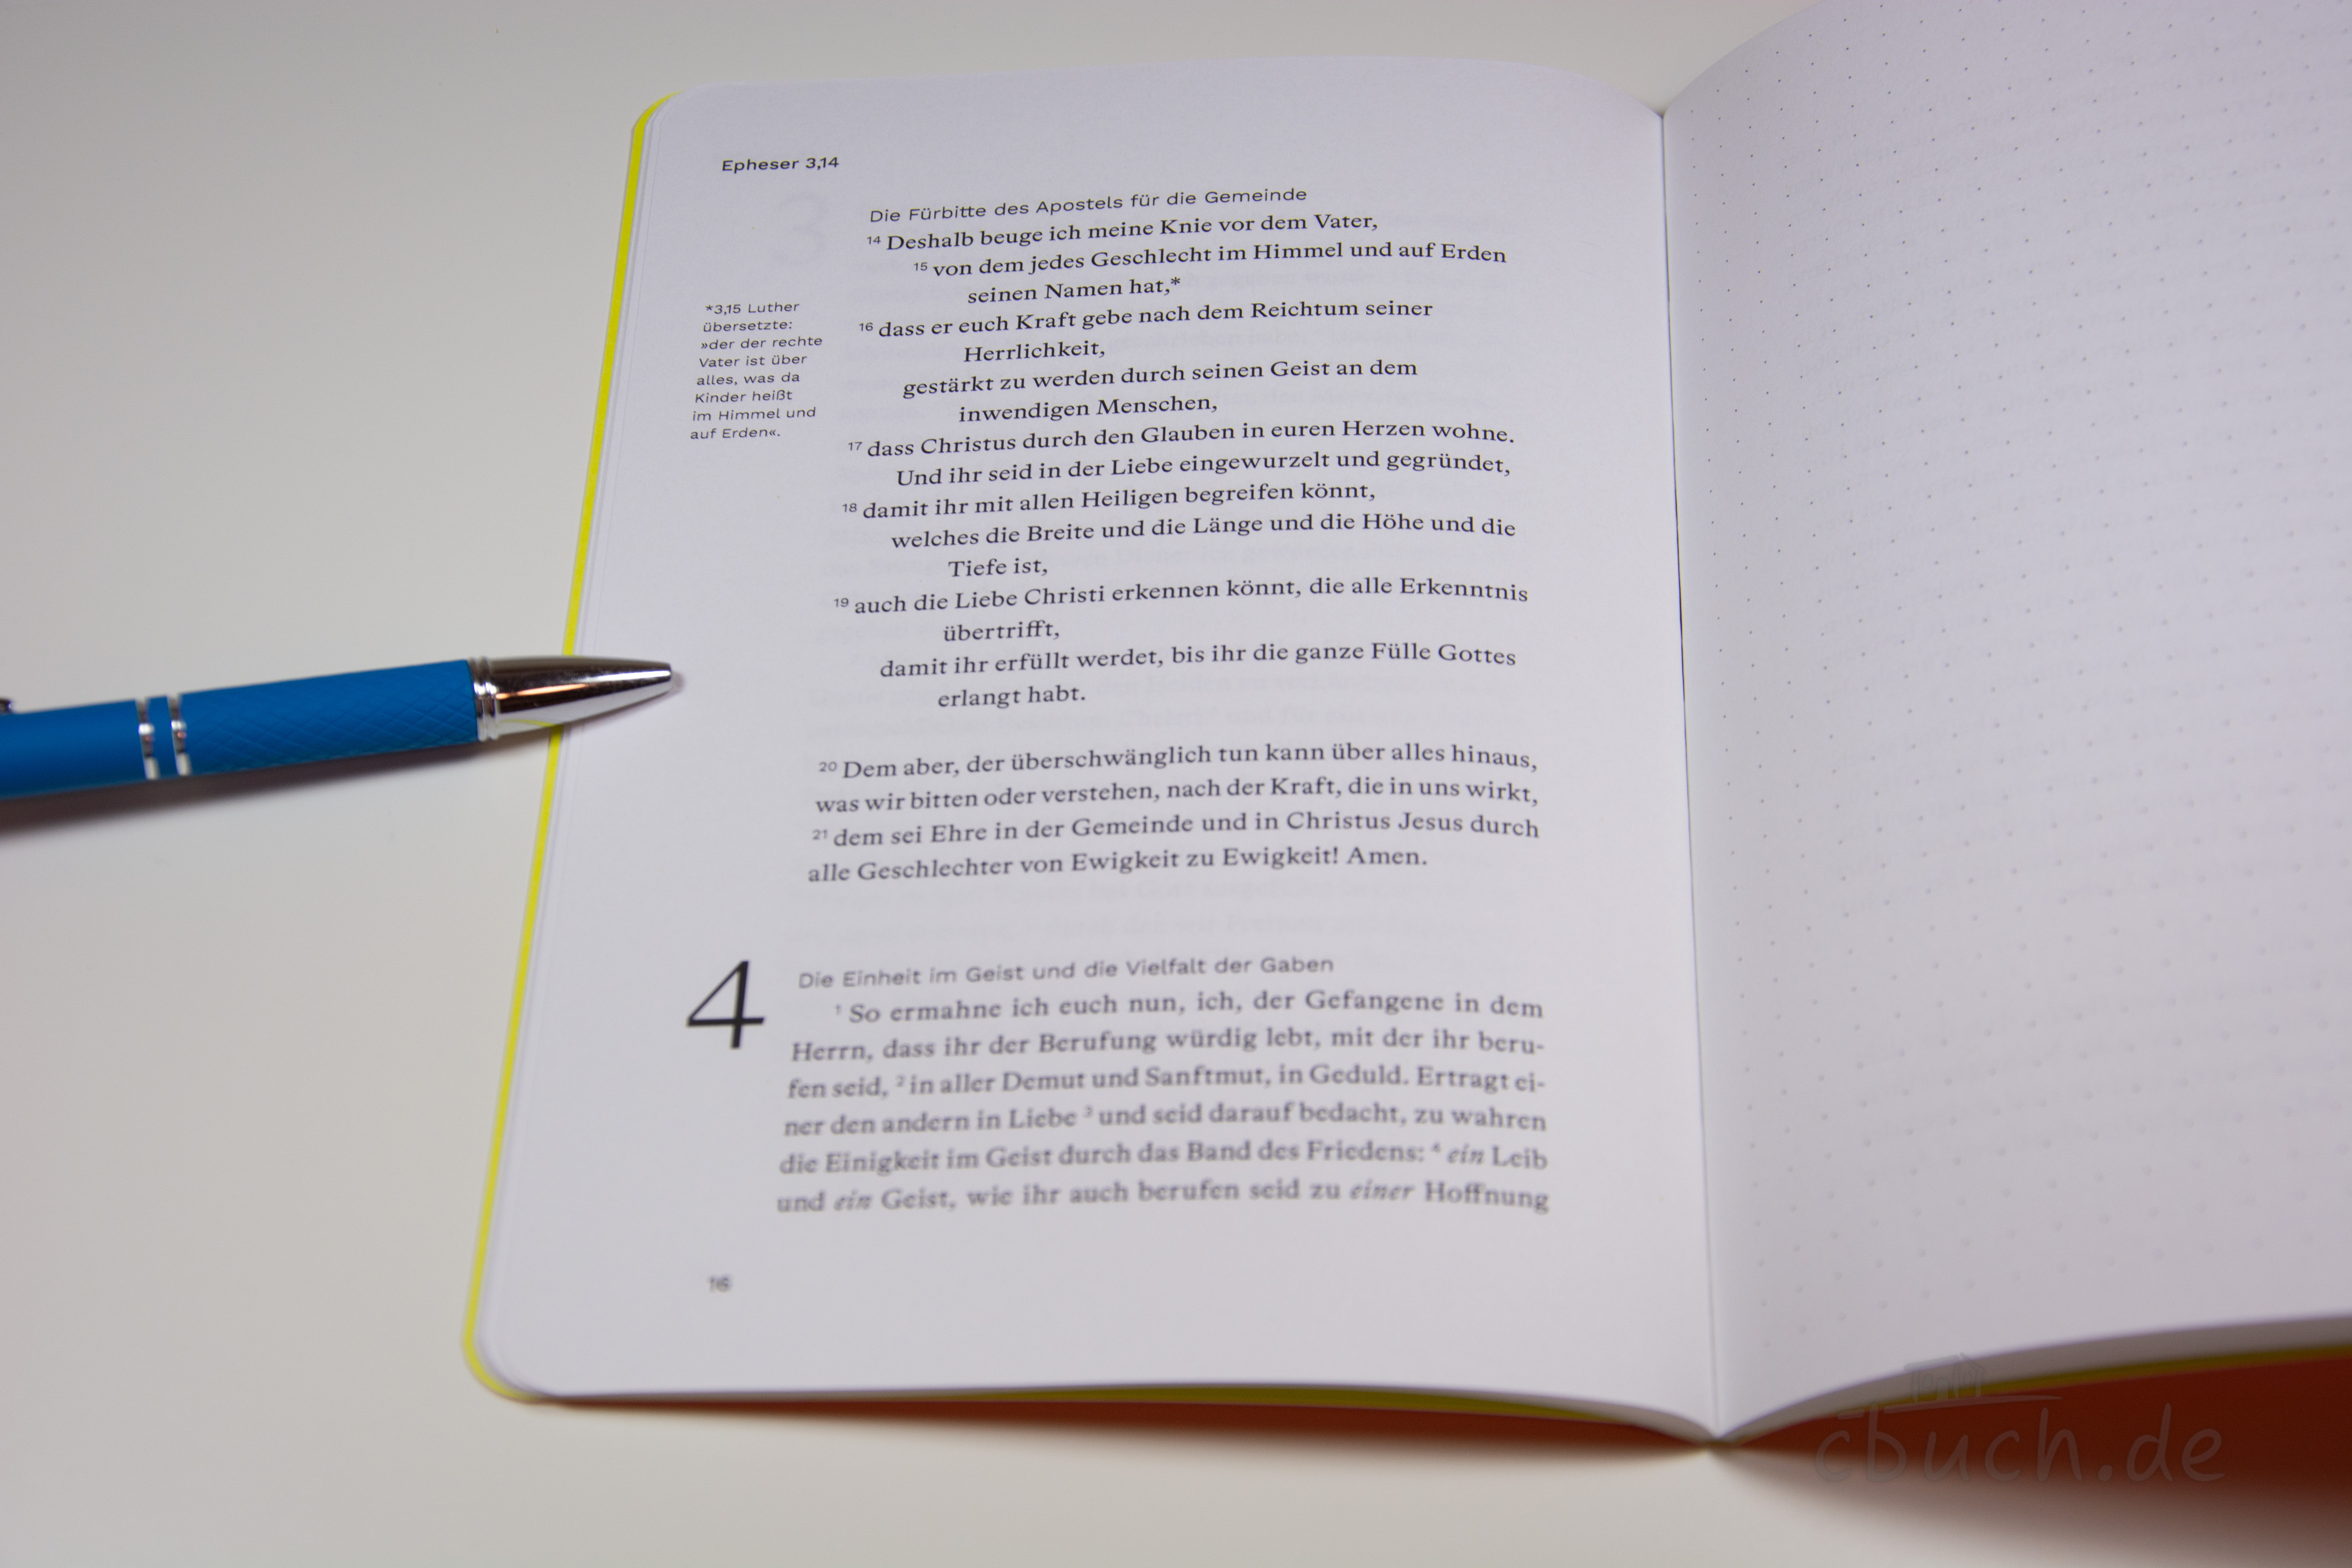 Epheser 3,14
Die Fürbitte des Apostels für die Gemeinde
14 Deshalb beuge ich meine Knie vor dem Vater,
15 von dem jedes Geschlecht im Himmel und auf Erden
seinen Namen hat,*
16 dass er euch Kraft gebe nach dem Reichtum seiner
Herrlichkeit,
gestärkt zu werden durch seinen Geist an dem
inwendigen Menschen,
17 dass Christus durch den Glauben in euren Herzen wohne.
Und ihr seid in der Liebe eingewurzelt und gegründet,
18 damit ihr mit allen Heiligen begreifen könnt,
welches die Breite und die Länge und die Höhe und die
Tiefe ist,
19 auch die Liebe Christi erkennen könnt, die alle Erkenntnis
übertrifft,
damit ihr erfüllt werdet, bis ihr die ganze Fülle Gottes
erlangt habt.
*3,15 Luther
übersetzte:
»der der rechte
Vater ist über
alles, was da
Kinder heißt
im Himmel und
auf Erden«.
20 Dem aber, der überschwänglich tun kann über alles hinaus,
was wir bitten oder verstehen, nach der Kraft, die in uns wirkt,
21 dem sei Ehre in der Gemeinde und in Christus Jesus durch
alle Geschlechter von Ewigkeit zu Ewigkeit! Amen.
4
Die Einheit im Geist und die Vielfalt der Gaben
1 So ermahne ich euch nun, ich, der Gefangene in dem
Herrn, dass ihr der Berufung würdig lebt, mit der ihr beru-
fen seid, 2 in aller Demut und Sanftmut, in Geduld. Ertragt ei-
ner den andern in Liebe 3 und seid darauf bedacht, zu wahren
die Einigkeit im Geist durch das Band des Friedens: 4 ein Leib
und ein Geist, wie ihr auch berufen seid zu einer Hoffnung
16
cbuch.de